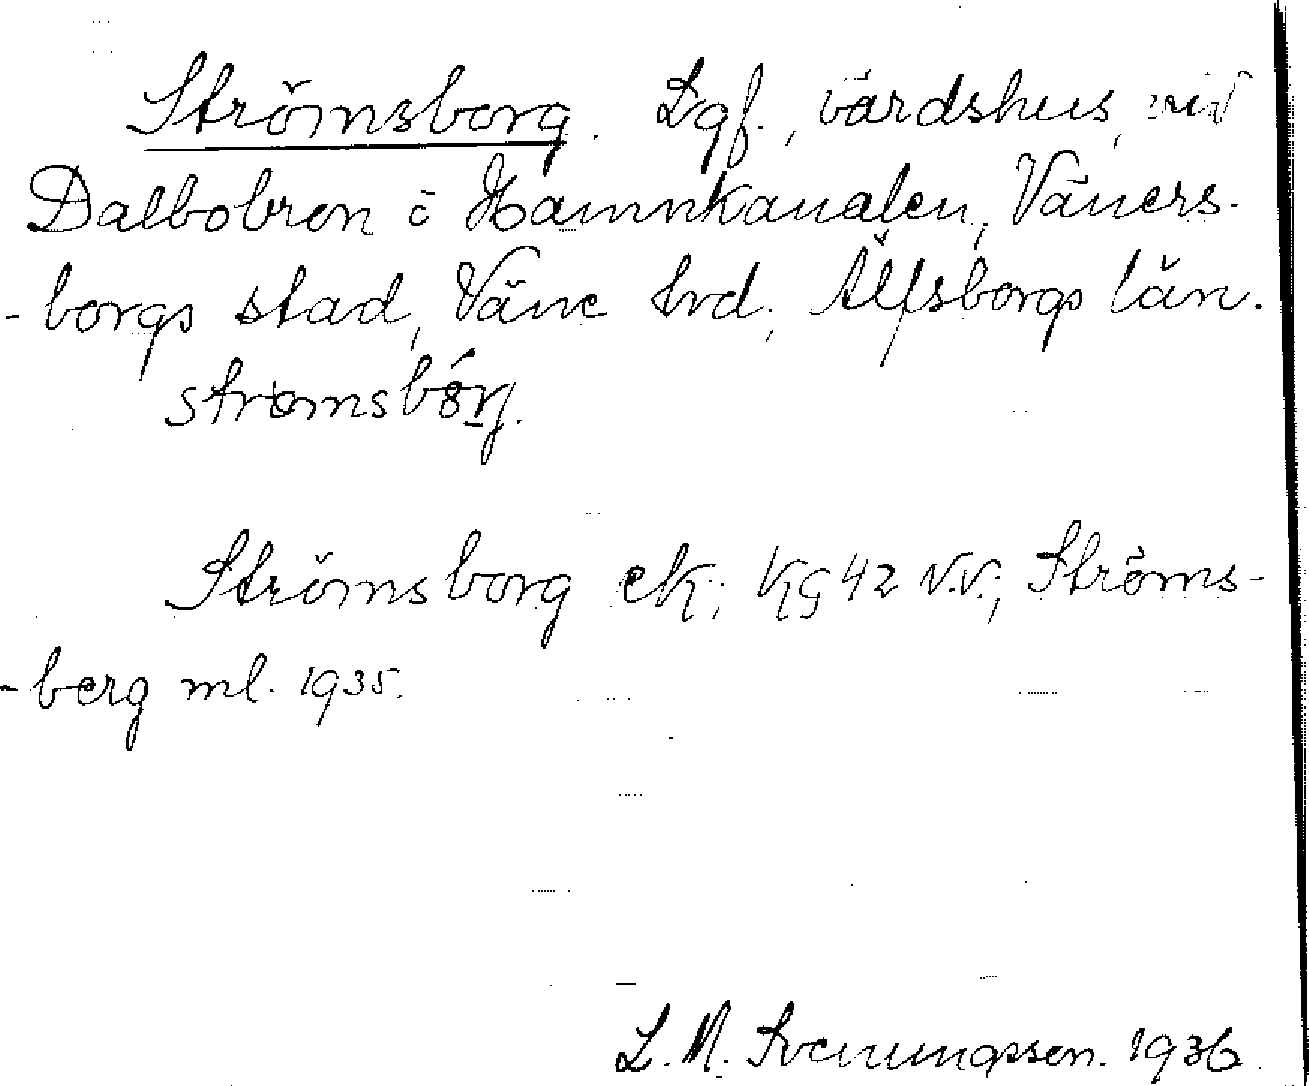 Strömsborg. Lgf., värdshus, vid
Dalbobron i Hamnkanalen, Väners-
-borgs stad, Väne hrd, Älfsborgs län.
strömsbórj.
Strömsborg ek; KG 42 N.V.; Ströms-
-berg ml. 1935.
L. M. Svenungsson. 1936.